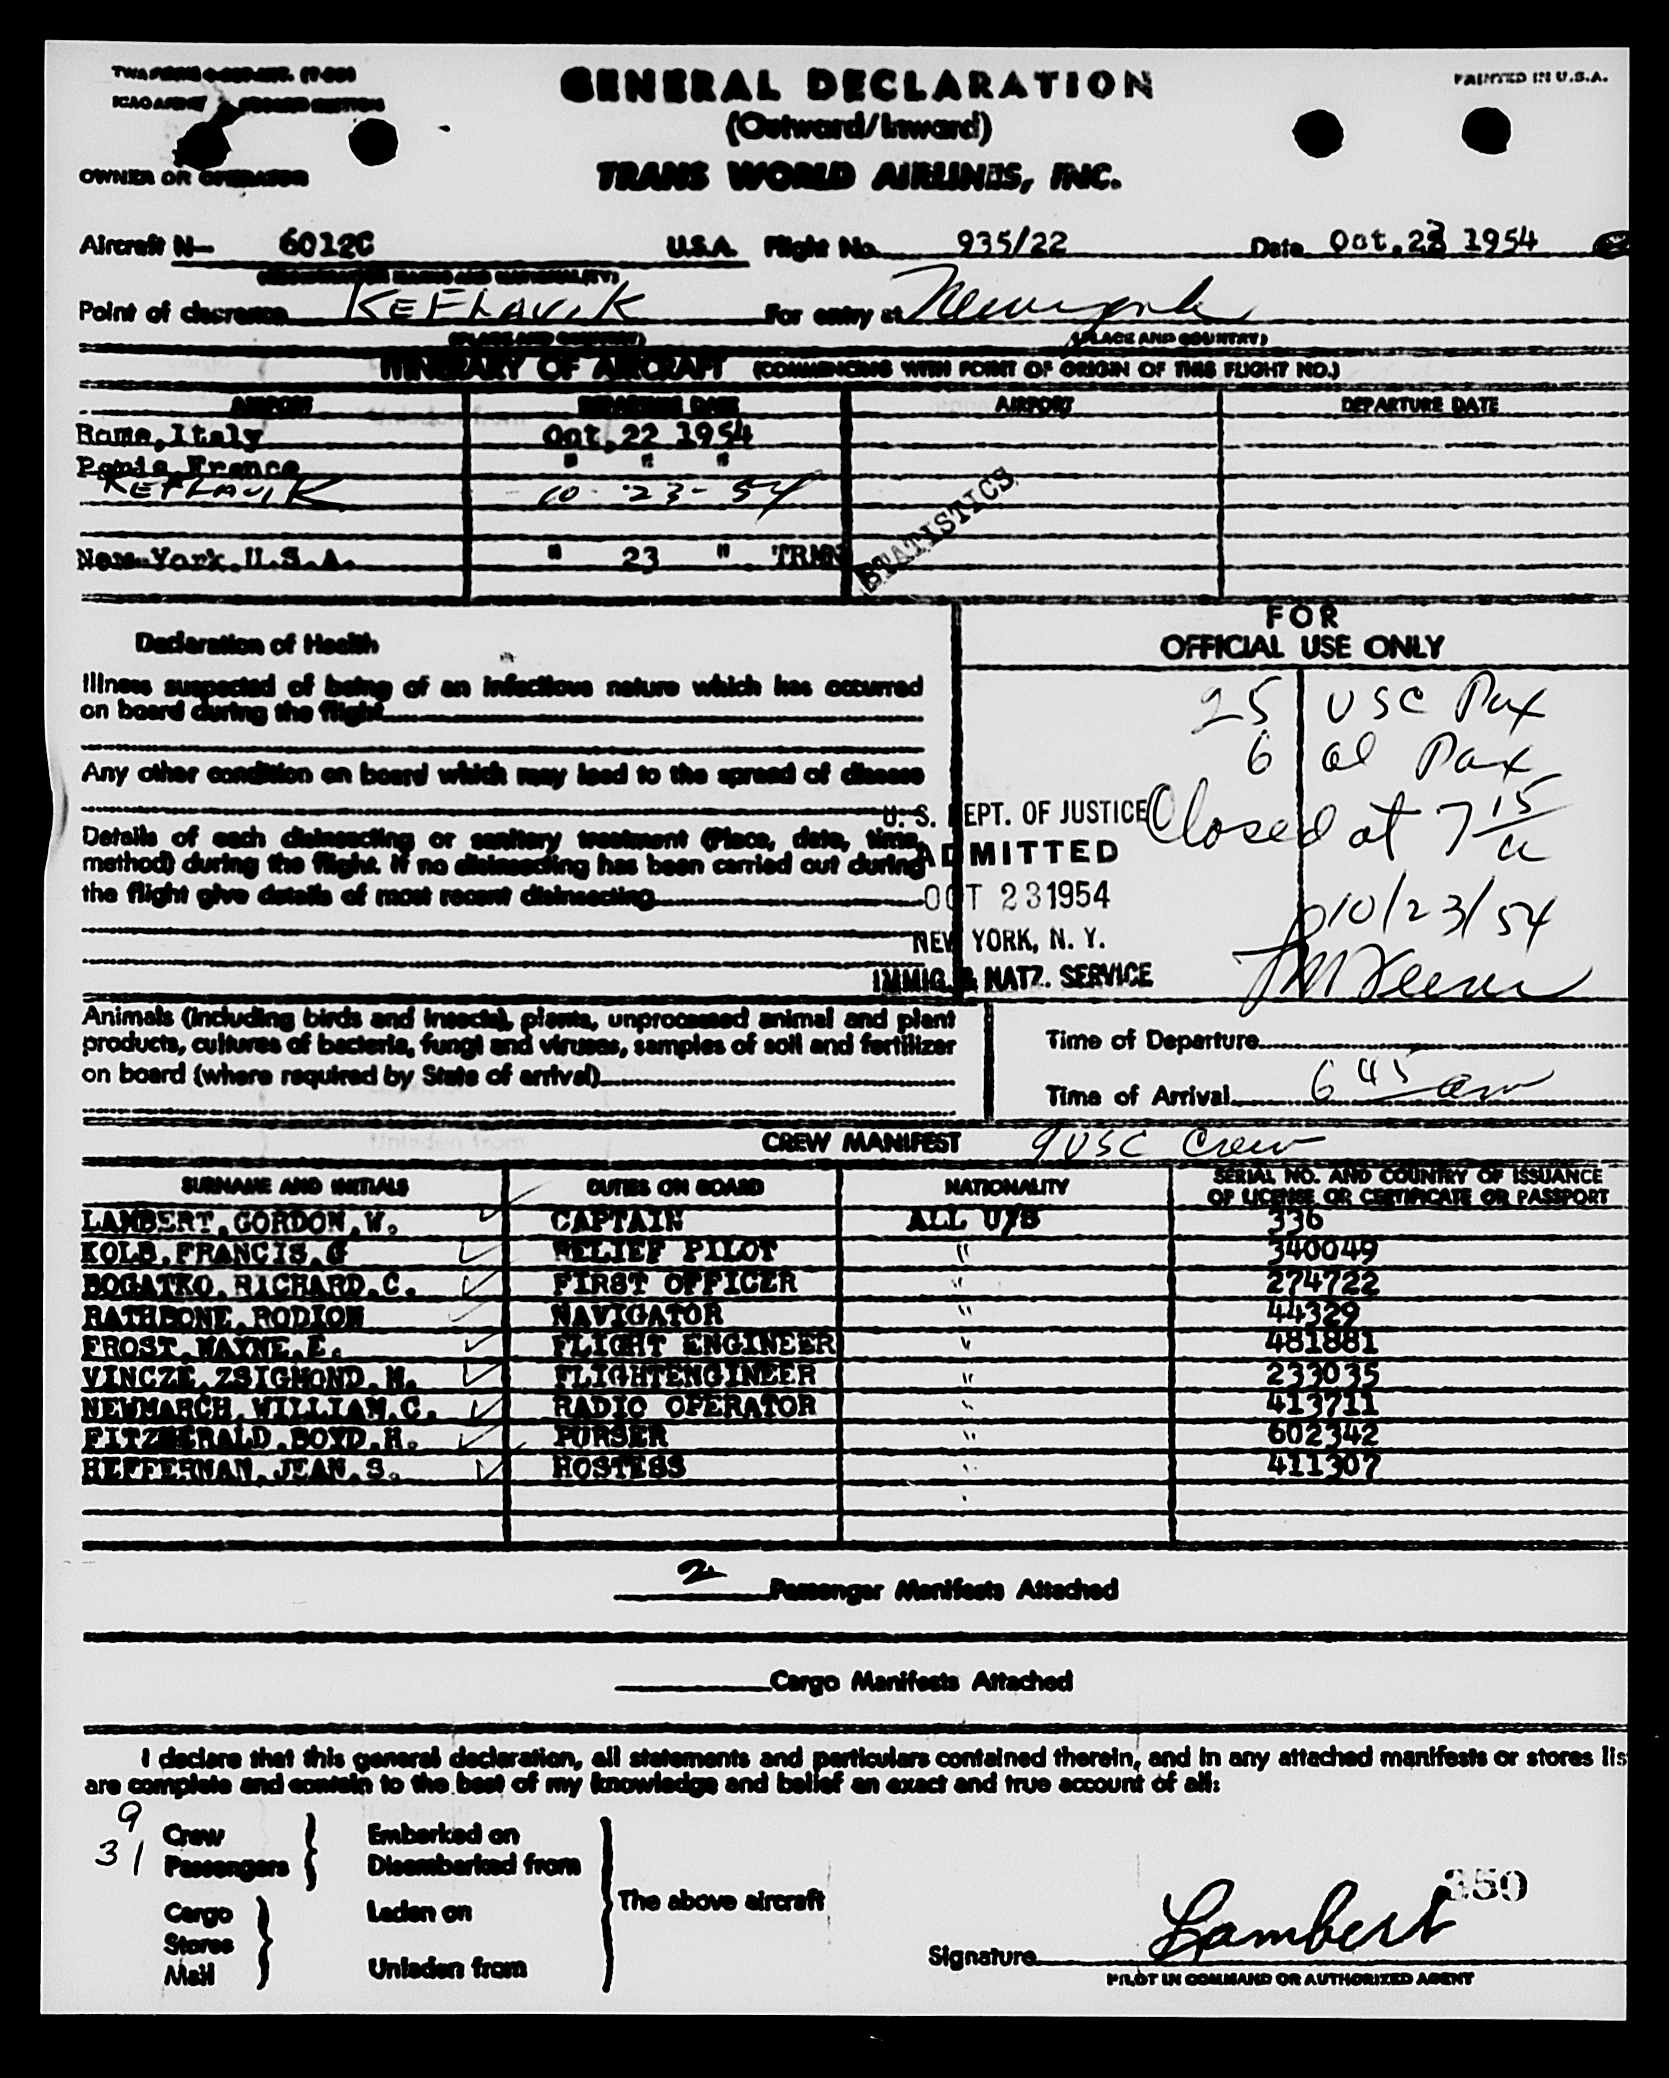 GENERAL DECLARATION
PRINTED IN U.S.A.
(Outward/Inward)
OWNER OR OPERATOR
TRANS WORLD AIRLINES, INC.
Aircraft N- 6012C U.S.A. Flight No. 935/22 Date Oct. 23 1954
(REGISTRATION MARKS AND NATIONALITY)
Point of clearance KEFLAVIK For entry at New york
(PLACE AND COUNTRY) (PLACE AND COUNTRY)
ITINERARY OF AIRCRAFT (COMMENCING WITH POINT OF ORIGIN OF THIS FLIGHT NO.)
AIRPORT DEPARTURE DATE AIRPORT DEPARTURE DATE
Rome, Italy Oct. 22 1954
Paris, France " " "
KEFLAVIK 10-23-54
STATISTICS
New York, U.S.A. " 23 " TRMN
FOR
OFFICIAL USE ONLY
Declaration of Health
Illness suspected of being of an infectious nature which has occurred
on board during the flight
25 USC Pax
6 al Pax
Any other condition on board which may lead to the spread of disease
Closed at 7 15 a
Details of each disinsecting or sanitary treatment (Place, date, time,
method) during the flight. If no disinsecting has been carried out during
the flight give details of most recent disinsecting
U. S. DEPT. OF JUSTICE
ADMITTED
OCT 23 1954
NEW YORK, N. Y.
IMMIG. & NATZ. SERVICE
10/23/54
Animals (including birds and insects), plants, unprocessed animal and plant
products, cultures of bacteria, fungi and viruses, samples of soil and fertilizer
on board (where required by State of arrival)
Time of Departure
Time of Arrival 6 45 am
CREW MANIFEST 9 USC Crew
SURNAME AND INITIALS DUTIES ON BOARD NATIONALITY SERIAL NO. AND COUNTRY OF ISSUANCE
OF LICENSE OR CERTIFICATE OR PASSPORT
LAMBERT, GORDON, W. CAPTAIN ALL U/S 336
KOLB, FRANCIS, G RELIEF PILOT " 340049
BOGATKO, RICHARD, C. FIRST OFFICER " 274722
RATHBONE, RODION NAVIGATOR " 44329
FROST, WAYNE, E. FLIGHT ENGINEER " 481881
VINCZE, ZSIGMOND, M. FLIGHTENGINEER " 233035
NEWMARCH, WILLIAM, C. RADIO OPERATOR " 413711
FITZGERALD, BOYD, H. PURSER " 602342
HEFFERNAN, JEAN, S. HOSTESS " 411307
2 Passenger Manifests Attached
Cargo Manifests Attached
I declare that this general declaration, all statements and particulars contained therein, and in any attached manifests or stores lis
are complete and contain to the best of my knowledge and belief an exact and true account of all:
9 Crew
31 Passengers
Embarked on
Disembarked from
Cargo
Stores
Mail
Laden on
Unladen from
The above aircraft
350
Signature Lambert
PILOT IN COMMAND OR AUTHORIZED AGENT